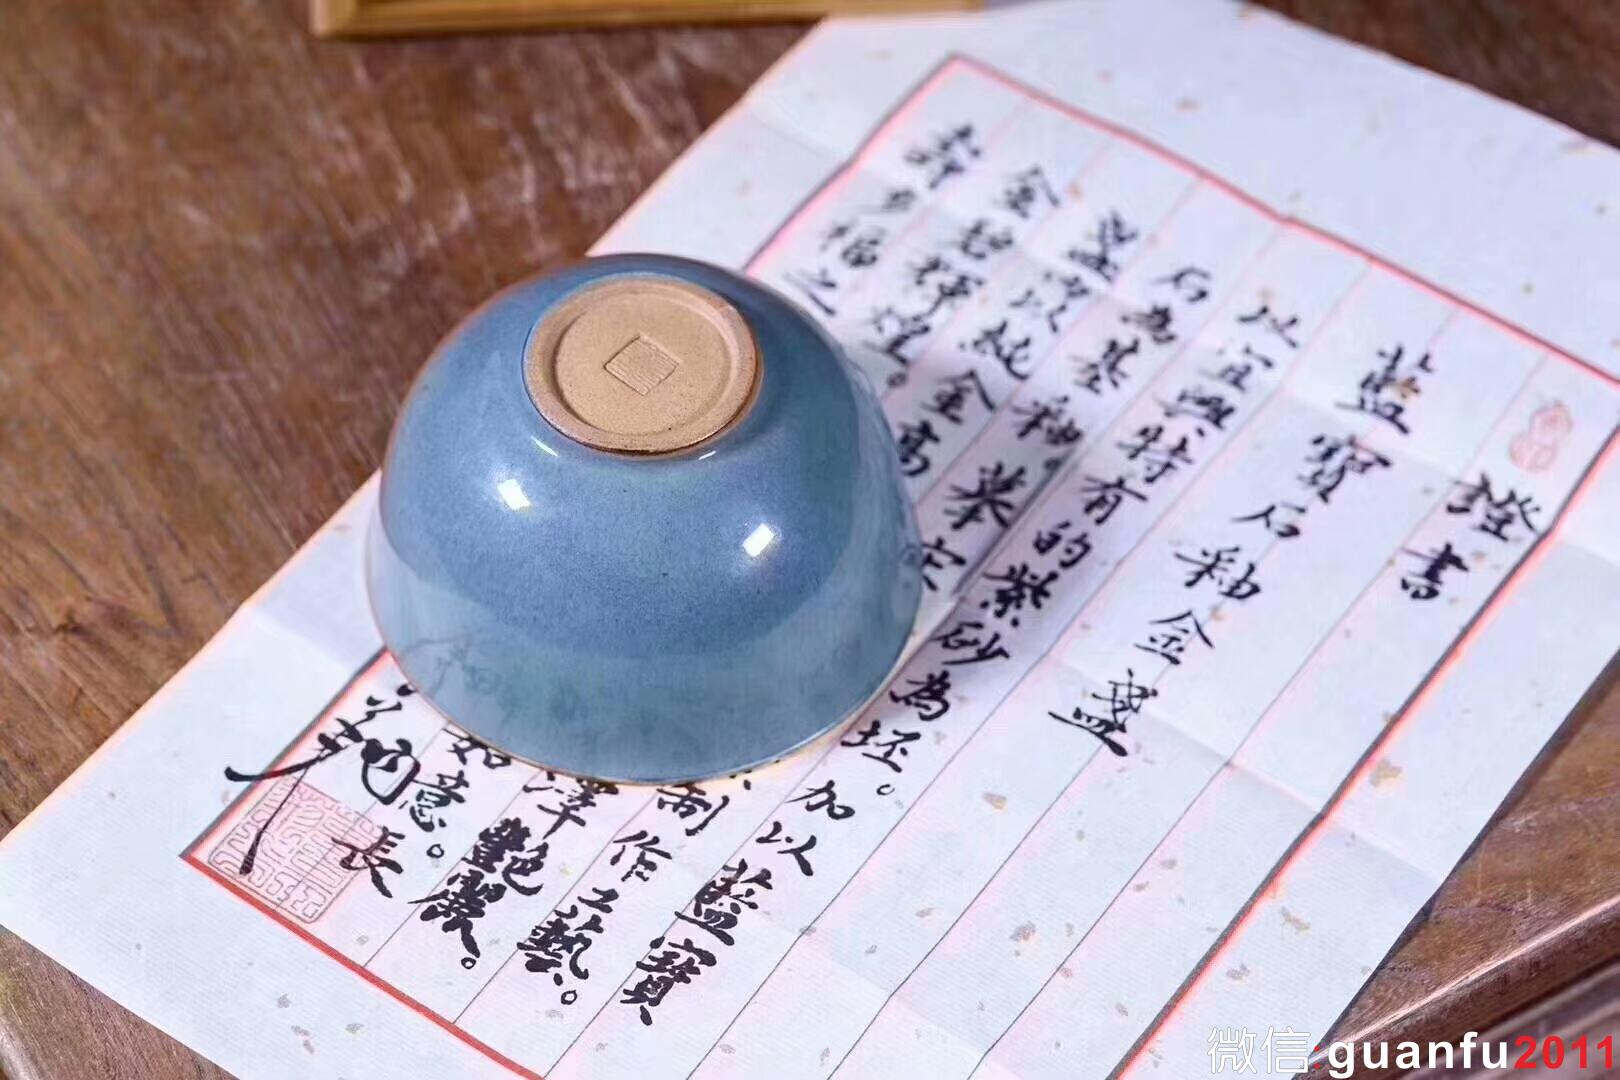 證書
藍寶石釉金盞
以宜興特有的紫砂為坯。加以藍寶
石為基釉。舉宋制作工藝。
盞內以純金高澤艷麗。
金碧輝煌。如意。長
壽多福之
微信:guanfu2011